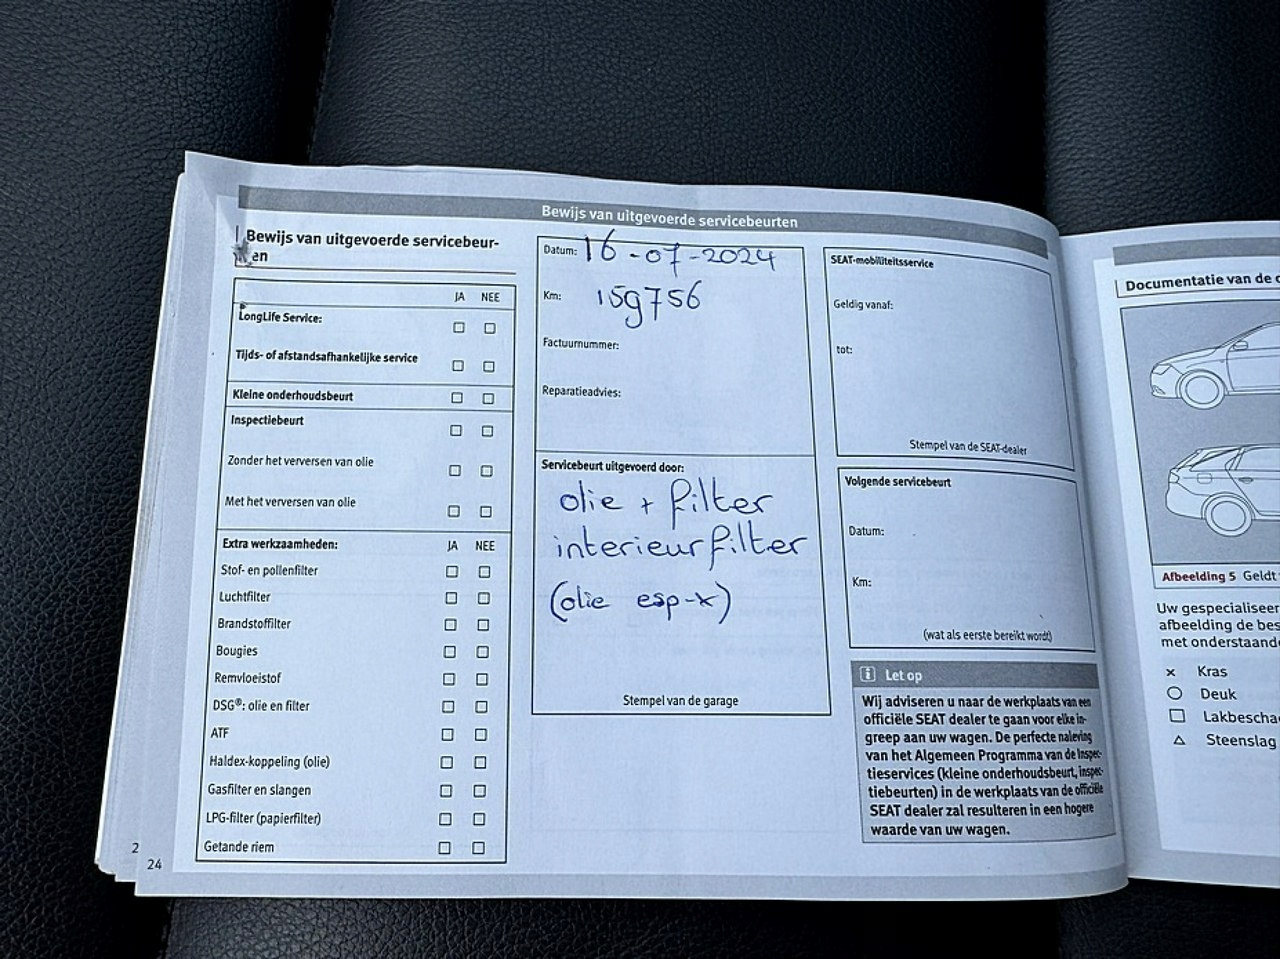 Bewijs van uitgevoerde servicebeurten
Bewijs van uitgevoerde servicebeur-
en
JA NEE
LongLife Service:
Tijds- of afstandsafhankelijke service
Kleine onderhoudsbeurt
Inspectiebeurt
Zonder het verversen van olie
Met het verversen van olie
Extra werkzaamheden: JA NEE
Stof- en pollenfilter
Luchtfilter
Brandstoffilter
Bougies
Remvloeistof
DSG®: olie en filter
ATF
Haldex-koppeling (olie)
Gasfilter en slangen
LPG-filter (papierfilter)
Getande riem
2
24
Datum: 16-07-2024
Km: 159756
Factuurnummer:
Reparatieadvies:
Servicebeurt uitgevoerd door:
olie + filter
interieurfilter
(olie esp-x)
Stempel van de garage
SEAT-mobiliteitsservice
Geldig vanaf:
tot:
Stempel van de SEAT-dealer
Volgende servicebeurt
Datum:
Km:
(wat als eerste bereikt wordt)
Let op
Wij adviseren u naar de werkplaats van een
officiële SEAT dealer te gaan voor elke in-
greep aan uw wagen. De perfecte naleving
van het Algemeen Programma van de Inspec-
tieservices (kleine onderhoudsbeurt, inspec-
tiebeurten) in de werkplaats van de officiële
SEAT dealer zal resulteren in een hogere
waarde van uw wagen.
Documentatie van de
Afbeelding 5 Geldt
Uw gespecialiseer
afbeelding de bes
met onderstaand
x Kras
Deuk
Lakbescha
Steenslag